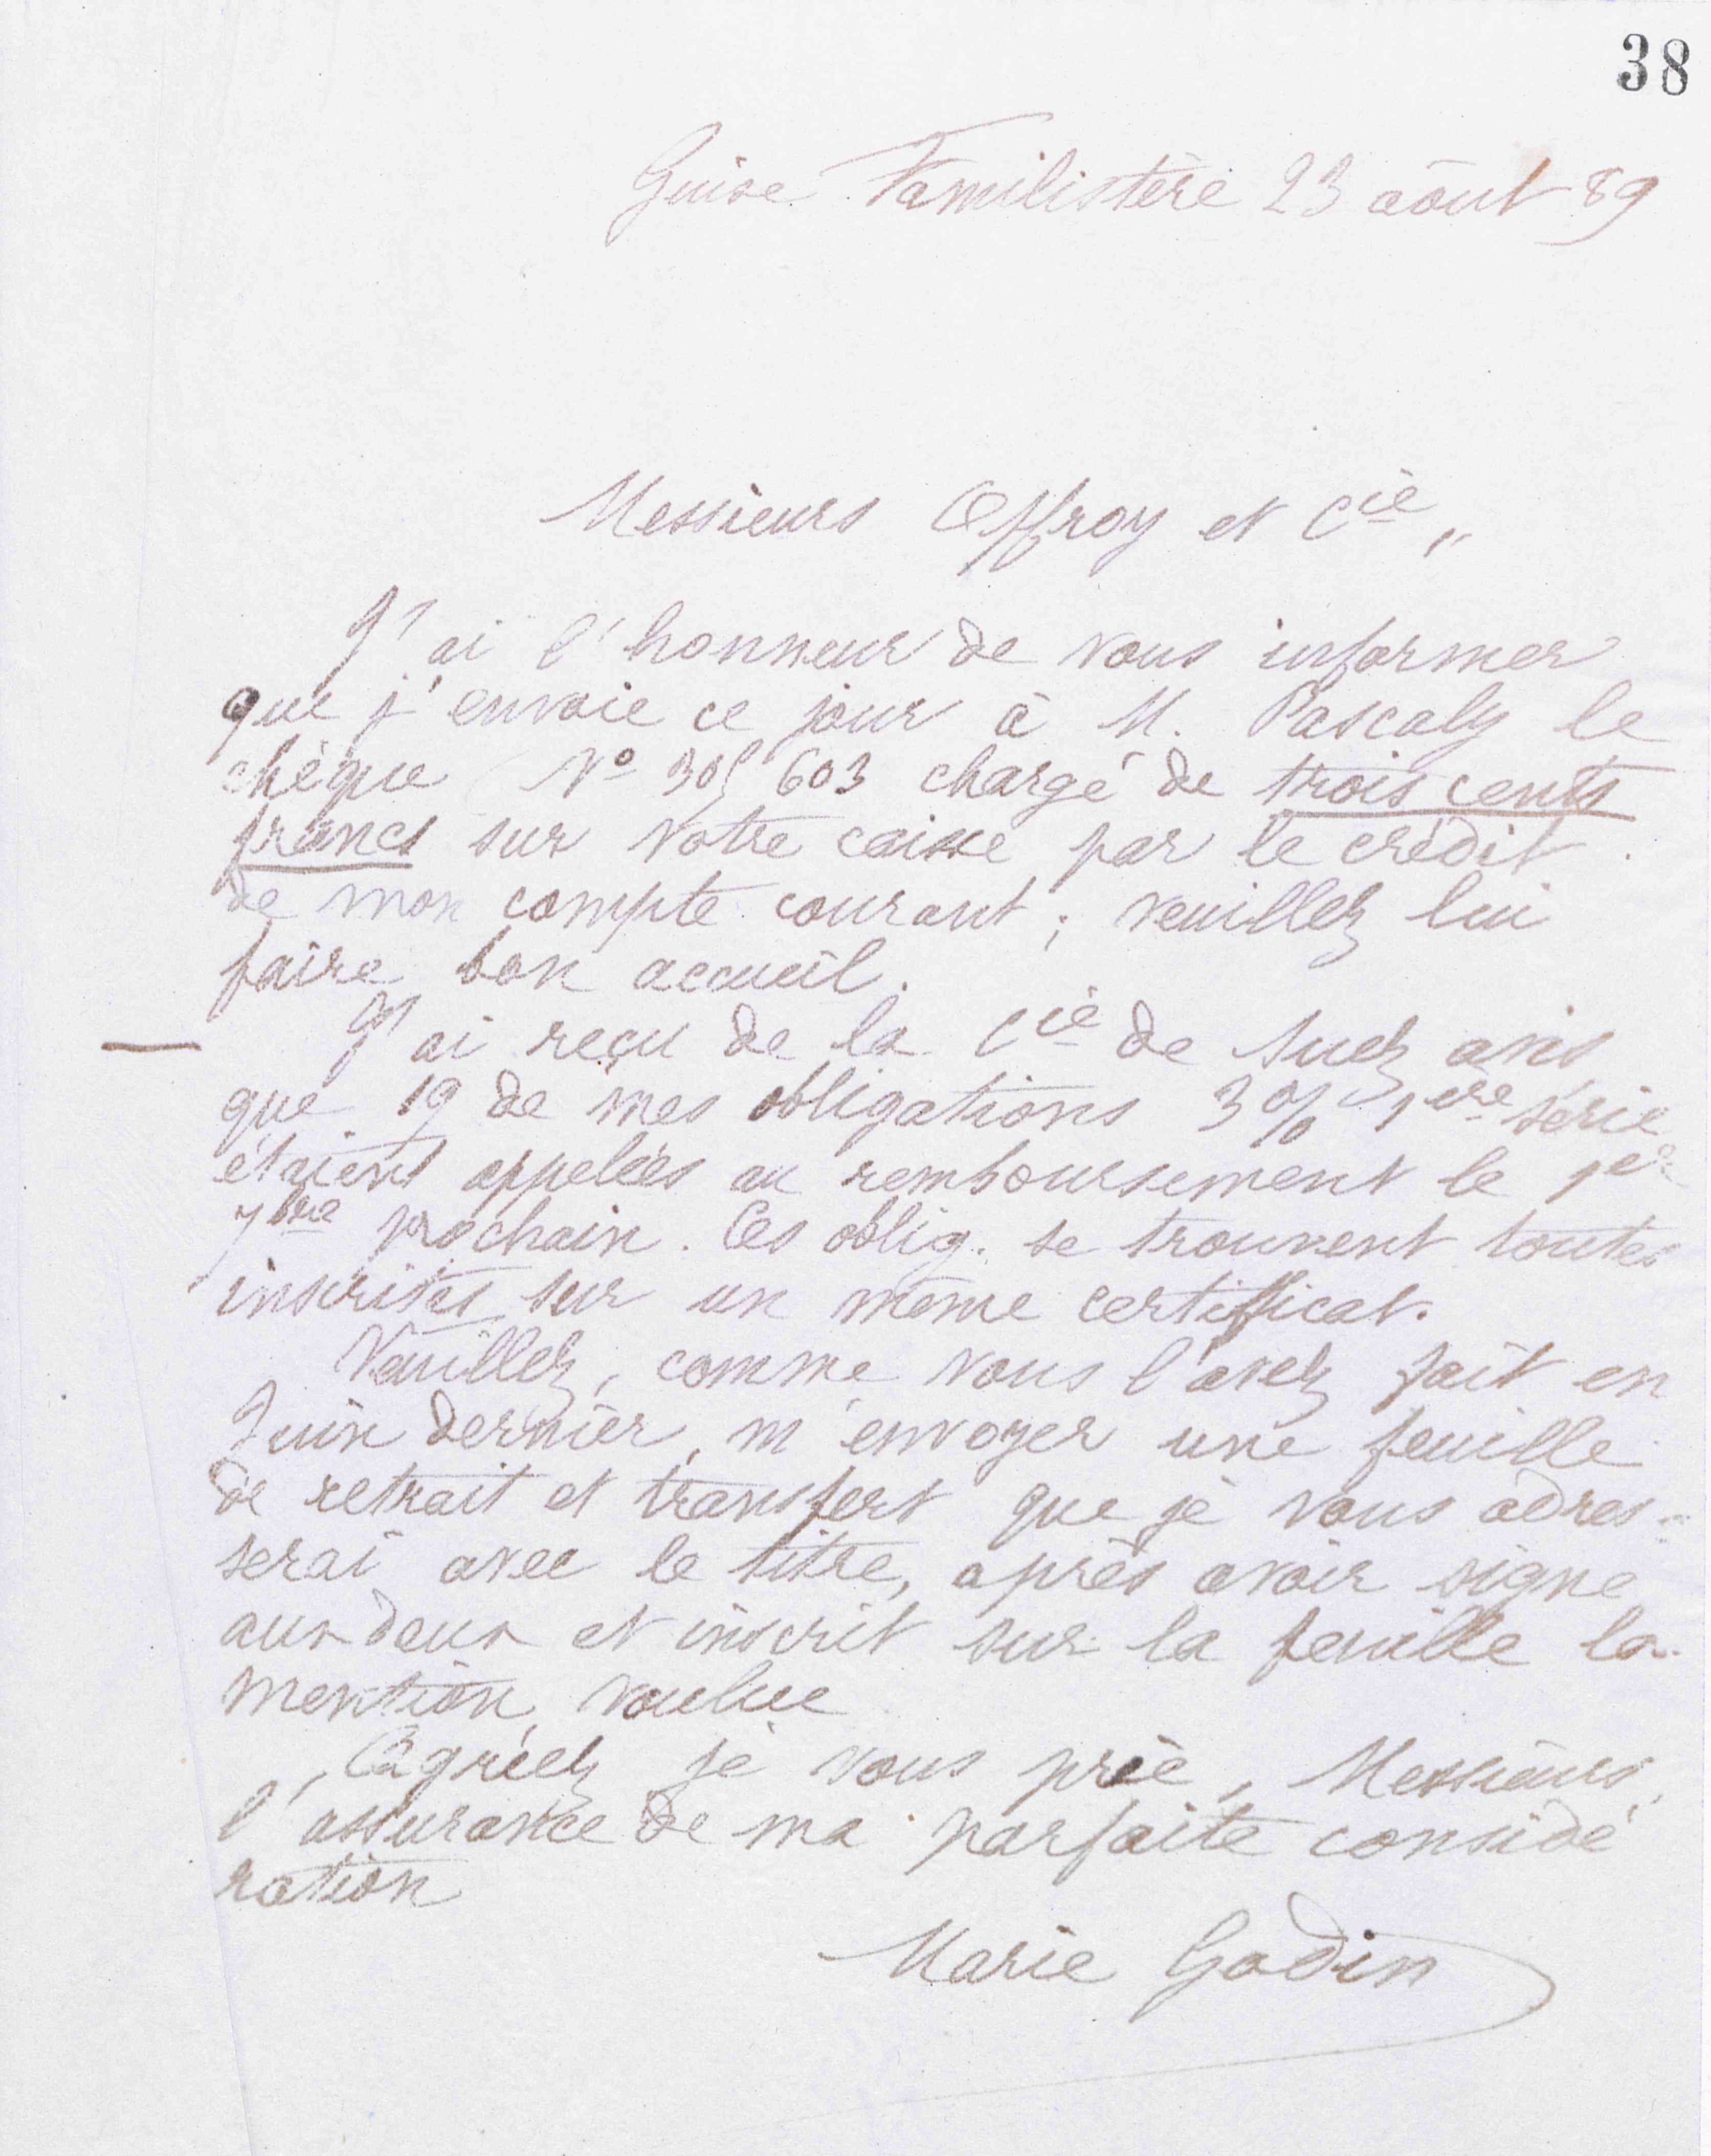 38
Guise Familistère 23 août 89
Messieurs Offroy et Cie,
J'ai l'honneur de vous informer
que j'envoie ce jour à M. Pascaly le
chèque No 305 603 chargé de trois cents
francs sur votre caisse par le crédit
de mon compte courant ; veuillez lui
faire bon accueil.
— J'ai reçu de la Cie de Suez avis
que 19 de mes obligations 3 % 1ère série
étaient appelées au remboursement le 1er
7bre prochain. Ces oblig. se trouvent toutes
inscrites sur un même certificat.
Veuillez, comme vous l'avez fait en
Juin dernier, m'envoyer une feuille
de retrait et transfert que je vous adres-
serai avec le titre, après avoir signé
aux deux et inscrit sur la feuille la
mention voulue
Agréez je vous prie, Messieurs,
l'assurance de ma parfaite considé
ration
Marie Godin